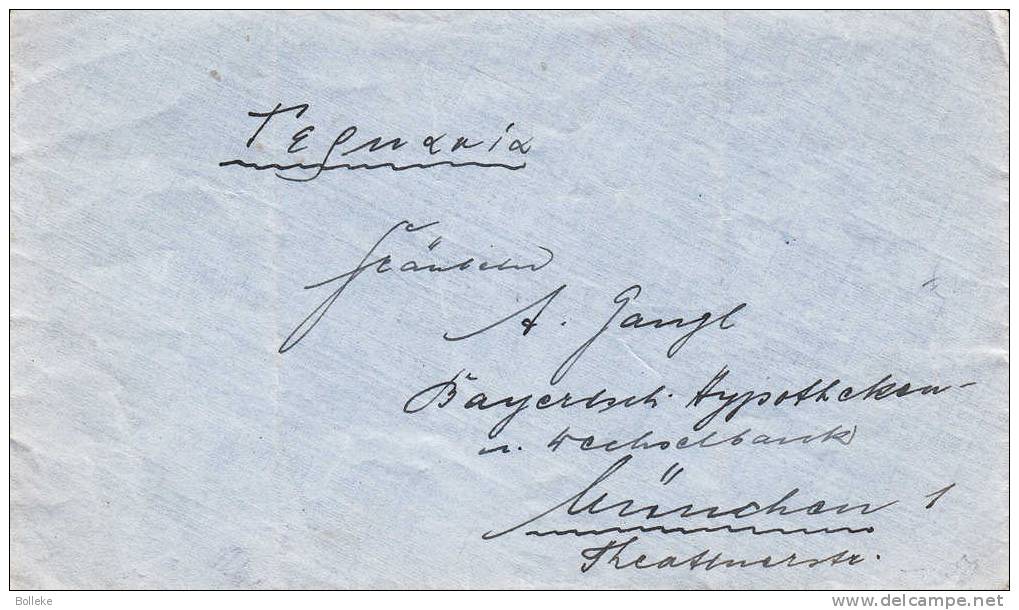 Γερμανία
Fräulein
A. Gangl
Bayerisch. Hypotheken-
u. Wechselbank
München 1
Theatinerstr.
Bolleke
delcampe.net